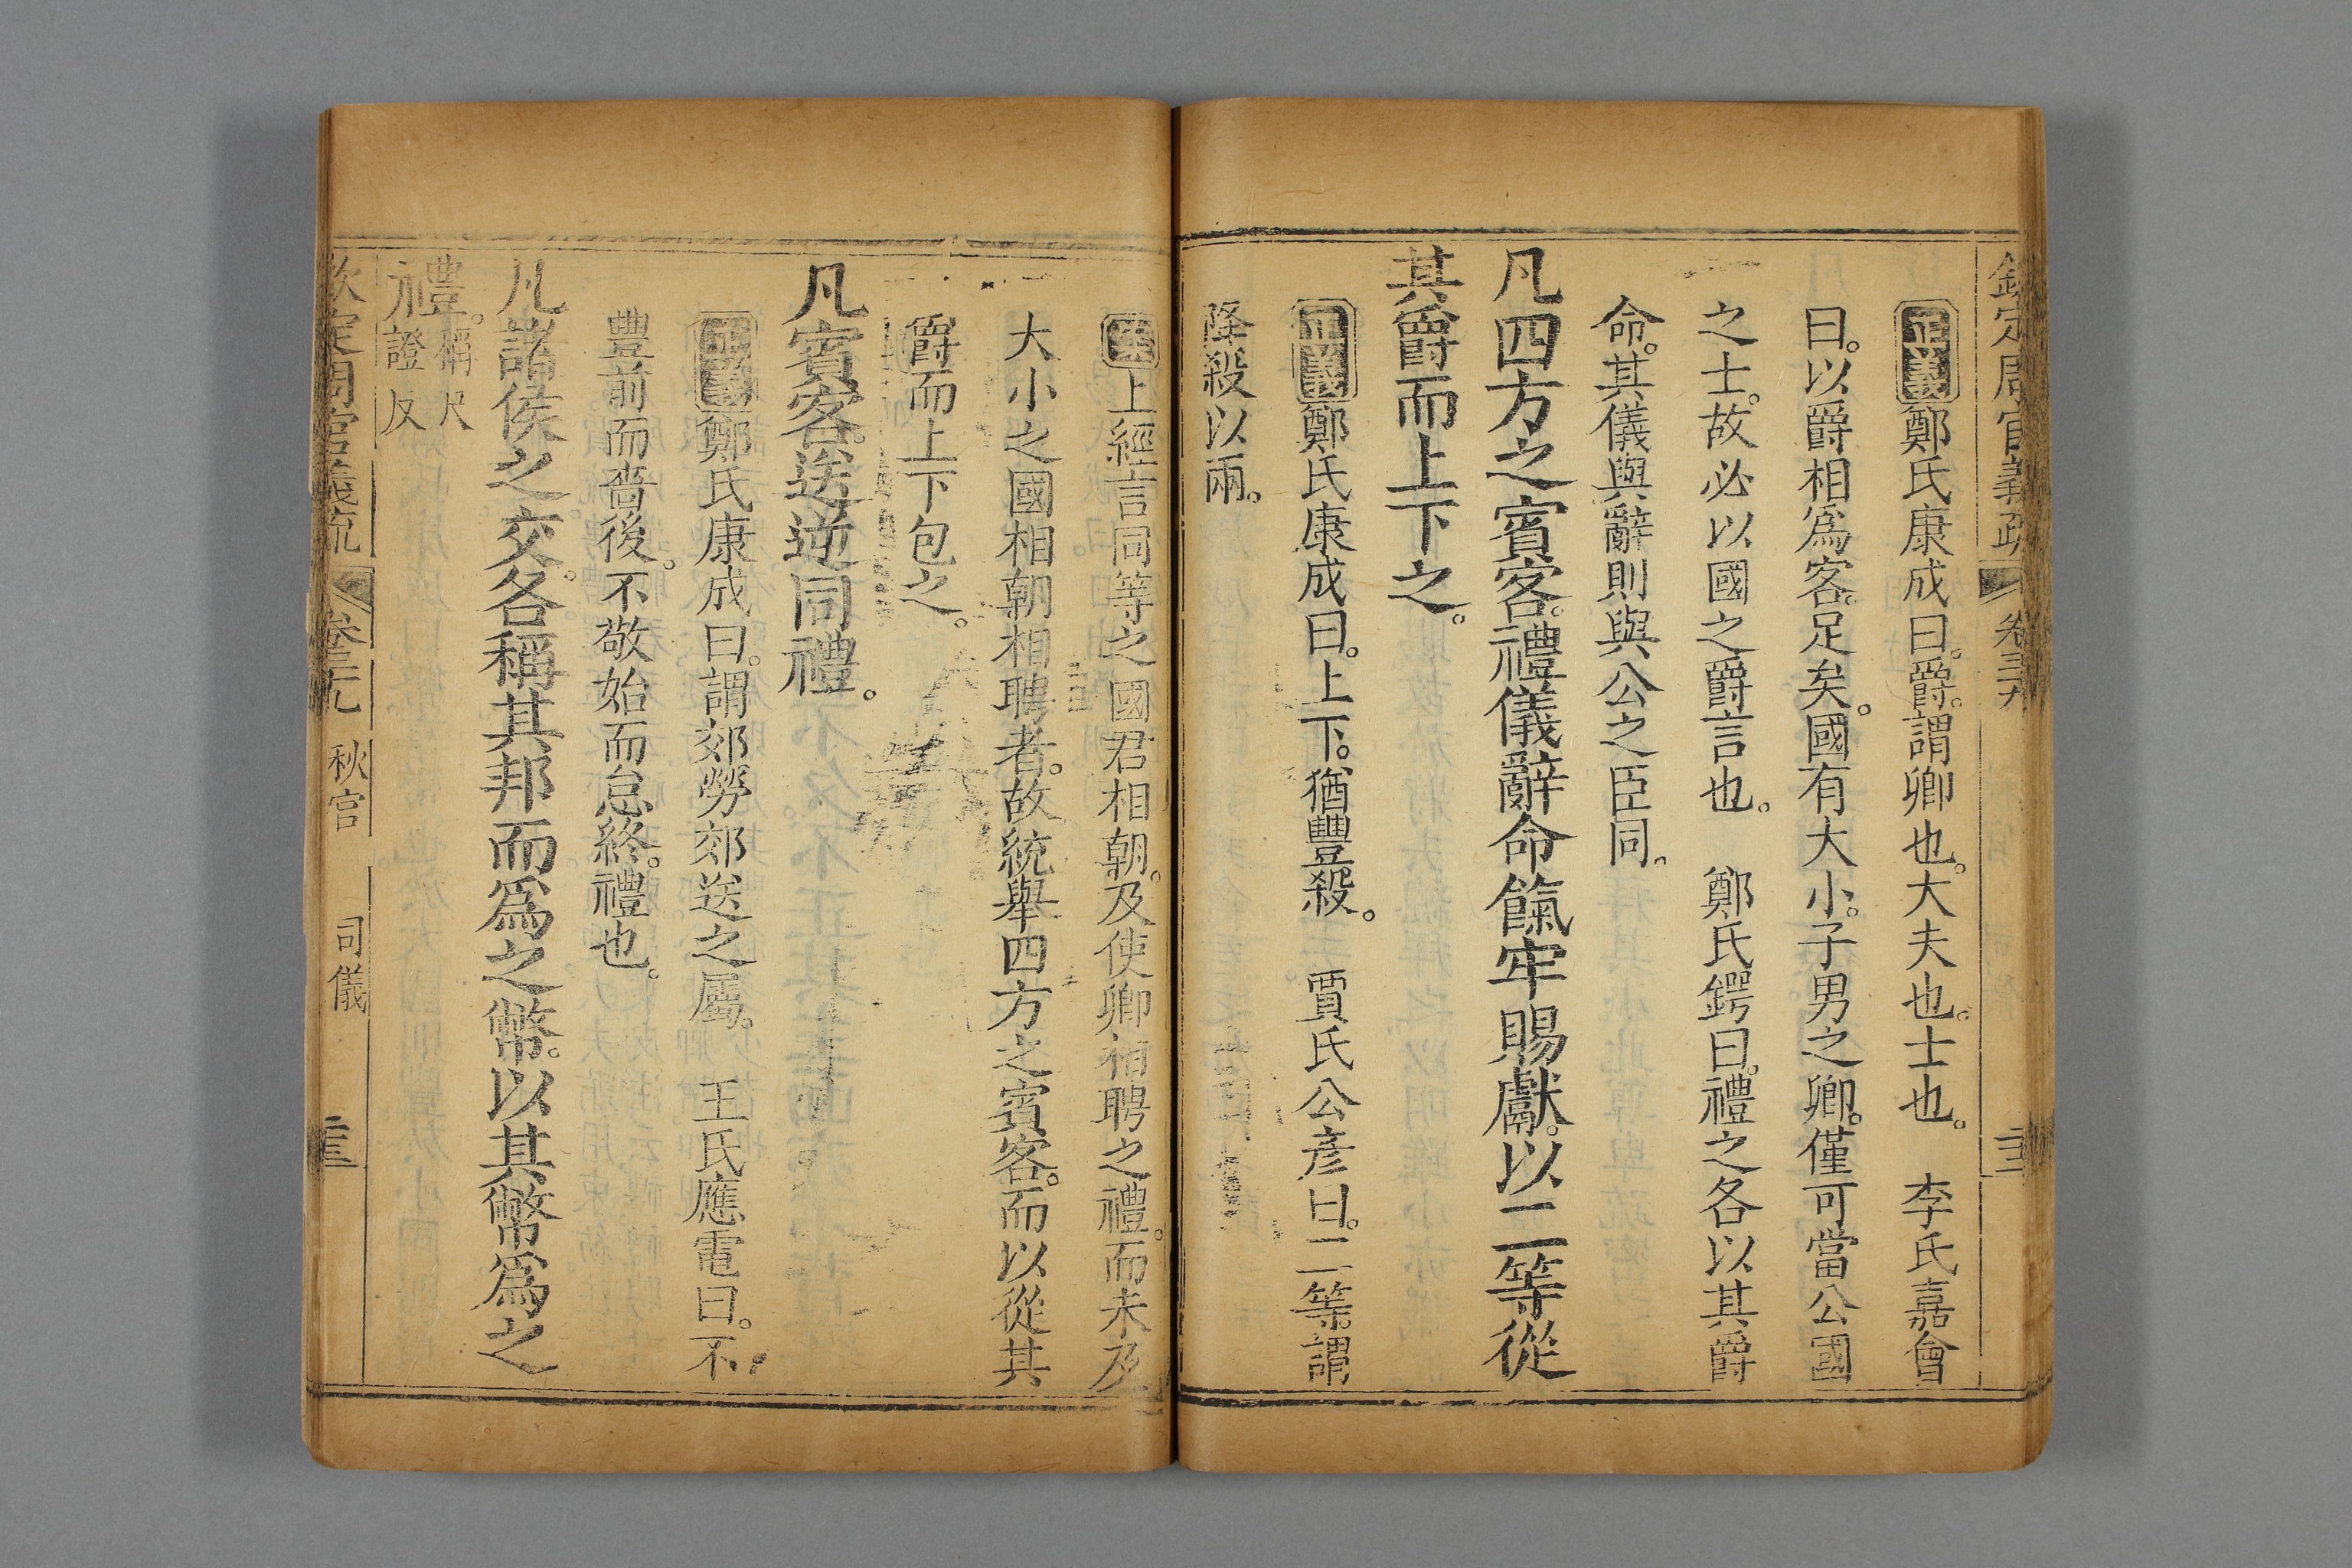 欽定周官義疏 卷三十九
正義鄭氏康成曰。爵。謂卿也。大夫也。士也。 李氏嘉會
曰。以爵相爲客。足矣。國有大小。子男之卿。僅可當公國
之士。故必以國之爵言也。 鄭氏鍔曰。禮之各以其爵
命。其儀與辭則與公之臣同。
凡四方之賓客。禮儀辭命餼牢賜獻。以二等從
其爵而上下之。
正義鄭氏康成曰。上下。猶豐殺。 賈氏公彥曰。二等。謂
降殺以兩。
上經言同等之國君相朝。及使卿相聘之禮。而未及
大小之國相朝相聘者。故統舉四方之賓客。而以從其
爵而上下包之。
凡賓客。送逆同禮。
正義鄭氏康成曰。謂郊勞郊送之屬。 王氏應電曰。不
豐前而嗇後。不敬始而怠終。禮也。
凡諸侯之交。各稱其邦而爲之幣。以其幣爲之
禮。稱尺證反
欽定周官義疏 卷三十九 秋官 司儀